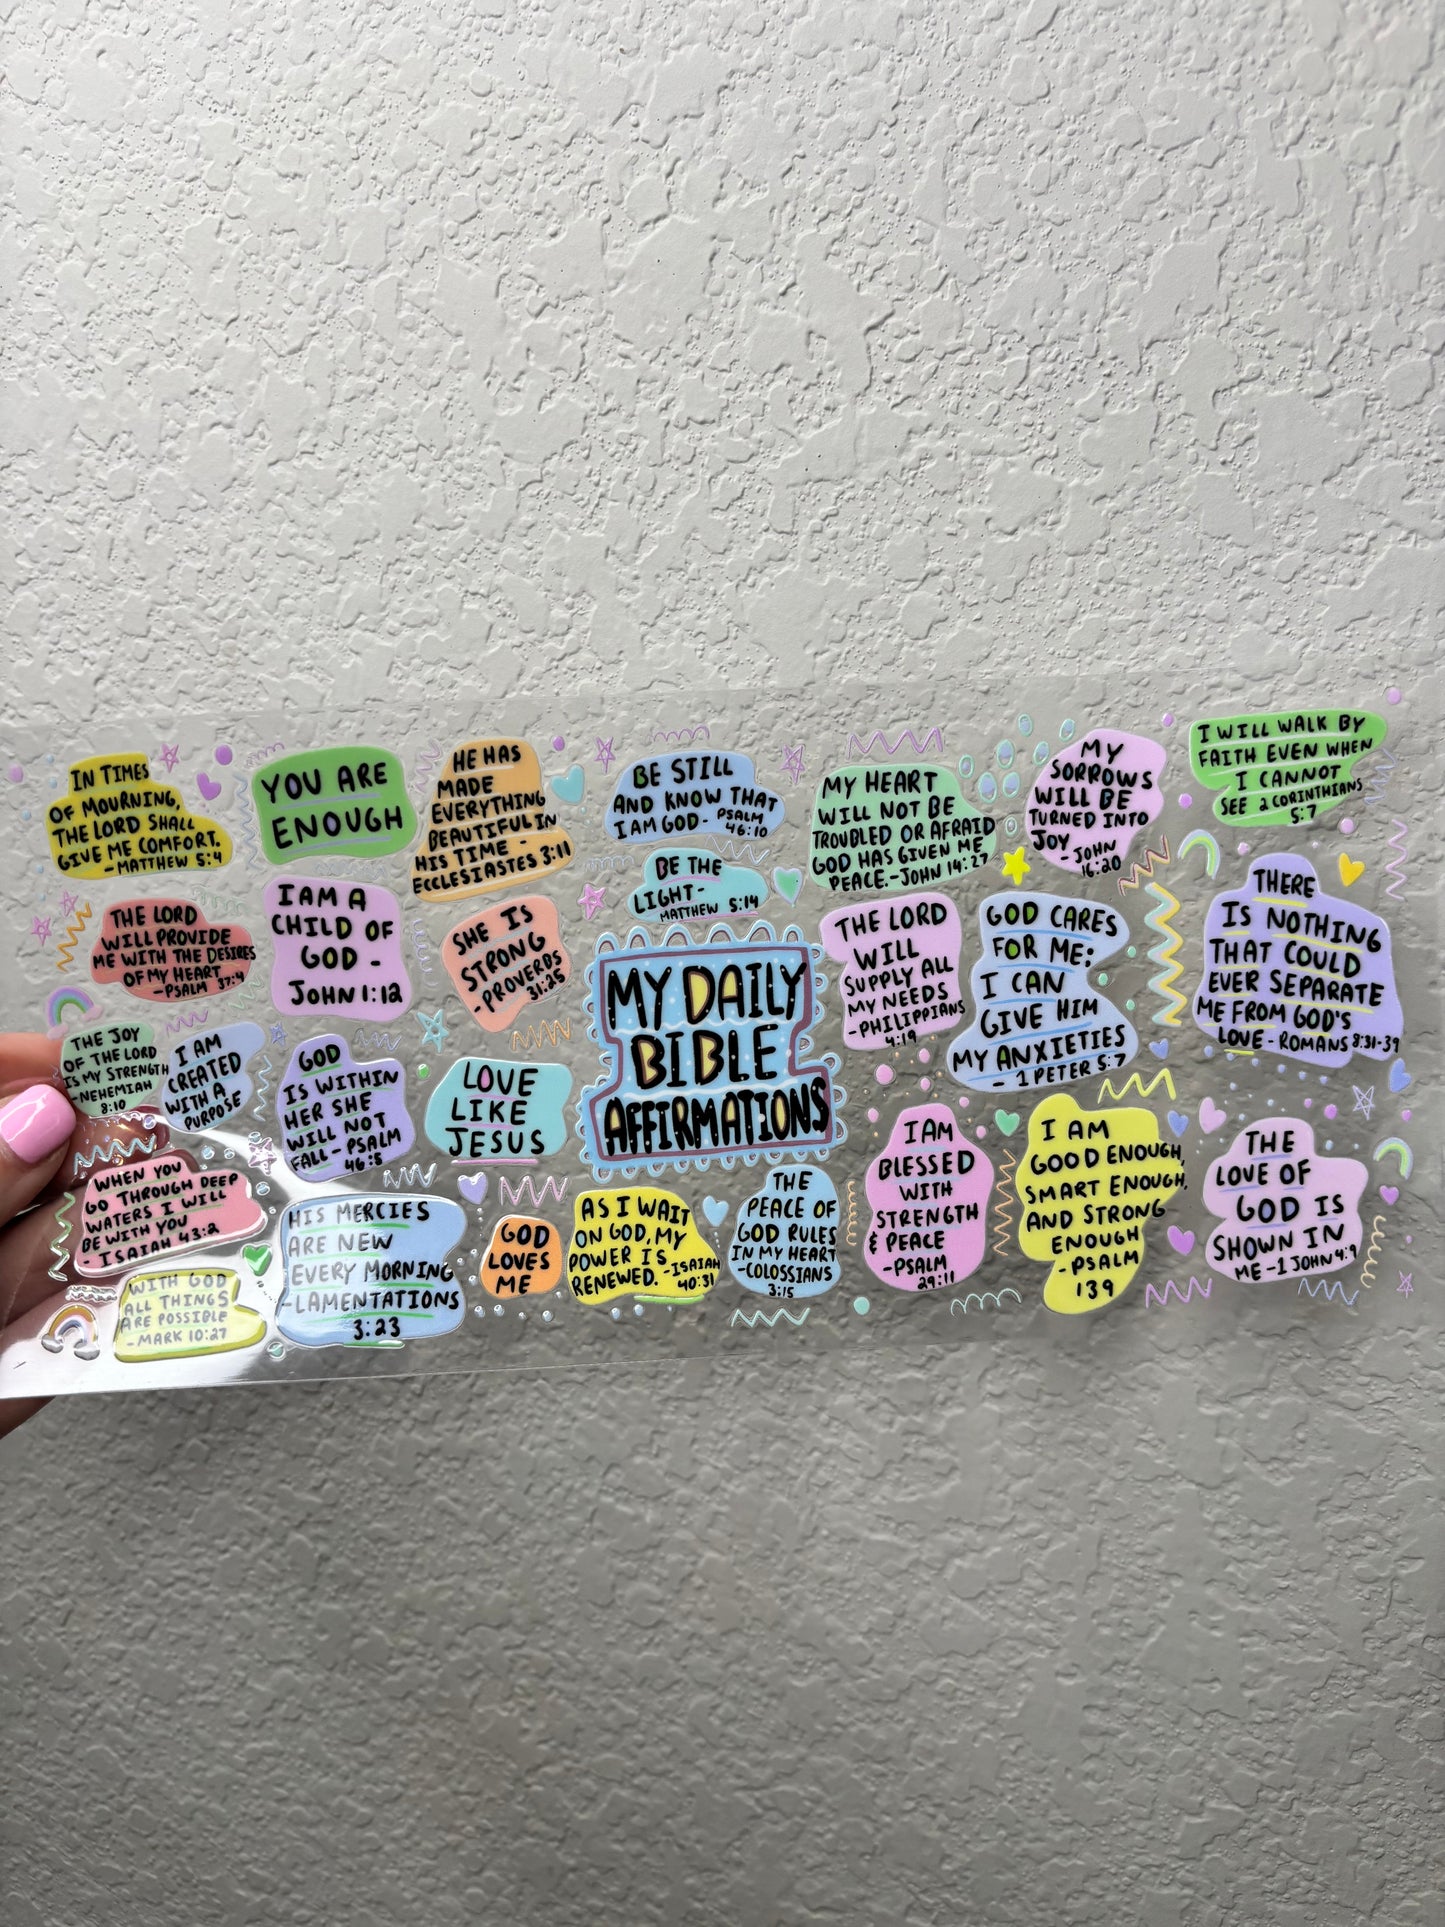 IN TIMES
OF MOURNING,
THE LORD SHALL
GIVE ME COMFORT.
-MATTHEW 5:4
YOU ARE
ENOUGH
HE HAS
MADE
EVERYTHING
BEAUTIFUL IN
HIS TIME -
ECCLESIASTES 3:11
BE STILL
AND KNOW THAT
I AM GOD - PSALM
46:10
BE THE
LIGHT -
MATTHEW 5:14
MY HEART
WILL NOT BE
TROUBLED OR AFRAID
GOD HAS GIVEN ME
PEACE.-JOHN 14:27
MY
SORROWS
WILL BE
TURNED INTO
JOY
-JOHN
16:20
I WILL WALK BY
FAITH EVEN WHEN
I CANNOT
SEE 2 CORINTHIANS
5:7
THE LORD
WILL PROVIDE
ME WITH THE DESIRES
OF MY HEART
-PSALM 37:4
I AM A
CHILD OF
GOD -
JOHN 1:12
SHE IS
STRONG
-PROVERDS
31:25
MY DAILY
BIBLE
AFFIRMATIONS
THE LORD
WILL
SUPPLY ALL
MY NEEDS
-PHILIPPIANS
4:19
GOD CARES
FOR ME;
I CAN
GIVE HIM
MY ANXIETIES
- 1 PETER 5:7
THERE
IS NOTHING
THAT COULD
EVER SEPARATE
ME FROM GOD'S
LOVE - ROMANS 8:31-39
THE JOY
OF THE LORD
IS MY STRENGTH
-NEHEMIAH
8:10
I AM
CREATED
WITH A
PURPOSE
GOD
IS WITHIN
HER SHE
WILL NOT
FALL - PSALM
46:5
LOVE
LIKE
JESUS
WHEN YOU
GO THROUGH DEEP
WATERS I WILL
BE WITH YOU
- ISAIAH 43:2
WITH GOD
ALL THINGS
ARE POSSIBLE
- MARK 10:27
HIS MERCIES
ARE NEW
EVERY MORNING
-LAMENTATIONS
3:23
GOD
LOVES
ME
AS I WAIT
ON GOD, MY
POWER IS
RENEWED. -ISAIAH
40:31
THE
PEACE OF
GOD RULES
IN MY HEART
-COLOSSIANS
3:15
I AM
BLESSED
WITH
STRENGTH
& PEACE
-PSALM
29:11
I AM
GOOD ENOUGH,
SMART ENOUGH,
AND STRONG
ENOUGH
-PSALM
139
THE
LOVE OF
GOD IS
SHOWN IN
ME -1 JOHN 4:9